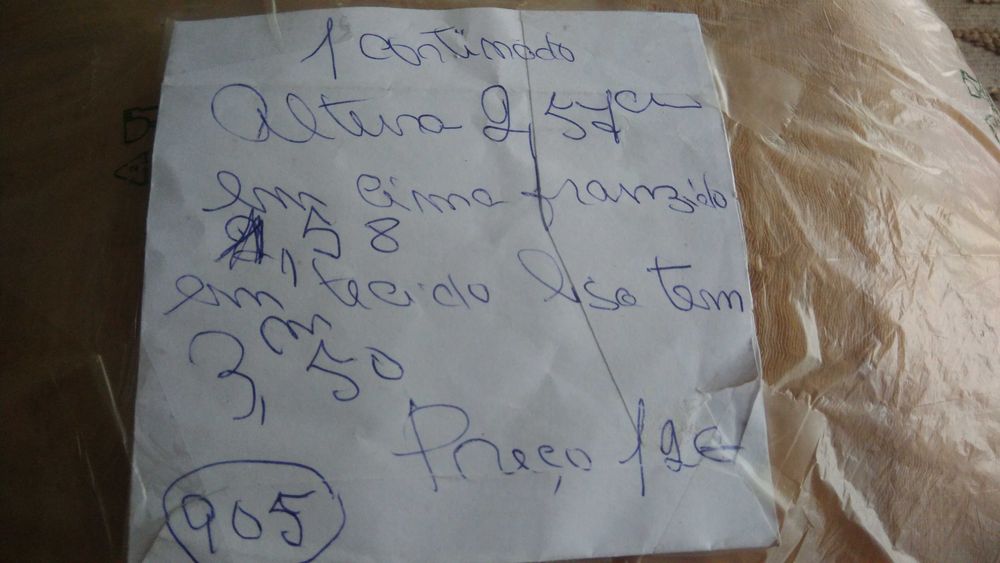 1 cortinado
Altura 2,57 cm
em cima franzido
1,58
em tecido liso tem
3,50 m
Preço 12€
905